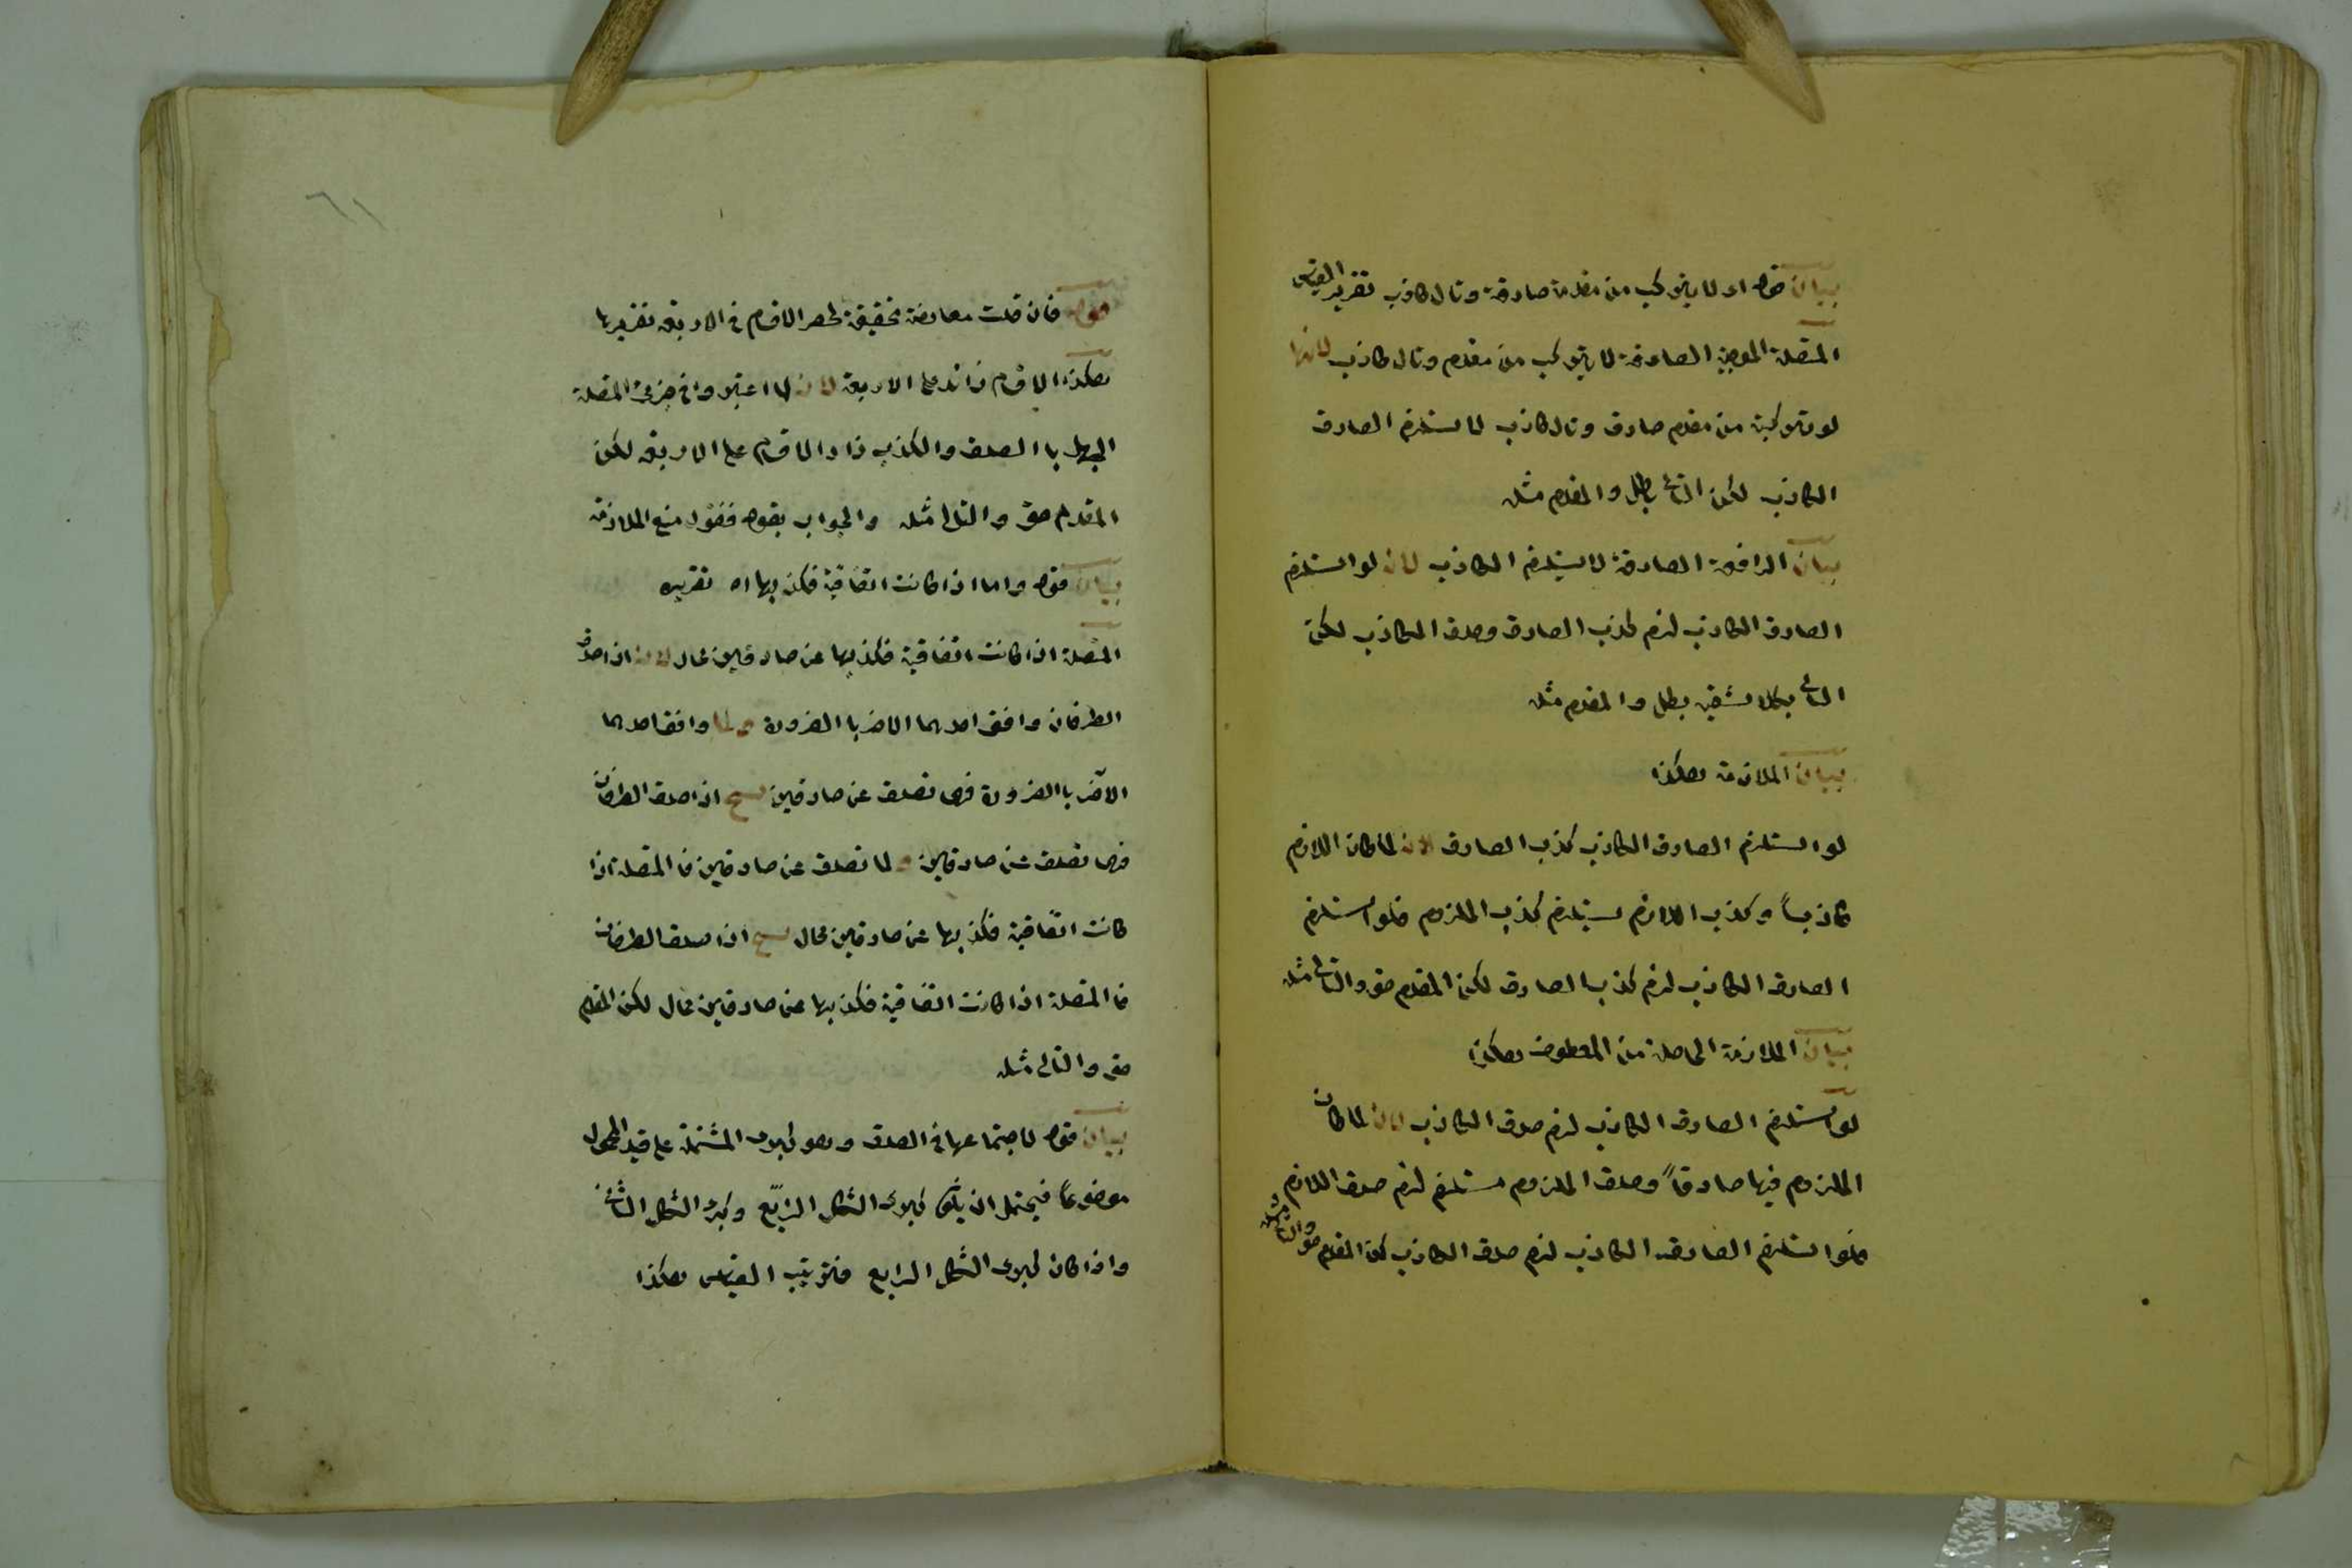 بيان قوله اد لا يتركب من مقدمة صادقة وتال كاذب تقرير القياس
المتصلة الموجبة الصادقة لا يتركب من مقدم وتال كاذب لانها
لو تركبت من مقدم صادق وتال كاذب لا ستلزم الصادق
الكاذب لكن التالى بطل والمقدم مثله
بيان الرافعة الصادقة لا يستلزم الكاذب لان لو استلزم
الصادق الكاذب لزم كذب الصادق وصدق الكاذب لكن
التالى بكلا شقيه بطل والمقدم مثله
بيان الملازمة هكذا
لو استلزم الصادق الكاذب كذب الصادق لان لما كان اللازم
كاذباً وكذب اللازم يستلزم كذب الملزوم فلو استلزم
الصادق الكاذب لزم كذب الصادق لكن المقدم حق والتالى مثله
بيان الملازمة الحاصلة من المعطوف هكذا
لو استلزم الصادق الكاذب لزم صدق الكاذب لان لما كان
الملزوم فيها صادقاً وصدق الملزوم مستلزم لزم صدق اللازم
فلو استلزم الصادق الكاذب لزم صدق الكاذب لكن المقدم حق والتالى مثله
٦١
قوله فان قلت معارضة تحقيقة لحصر الاقسام فى الاربعة تقريرها
هكذا الاقسام زائد على الاربعة لان لما اعتبروا فى جزئى المتصلة
الجهل باالصدق والكذب زاد الاقسام على الاربعة لكن
المقدم حق والتالى مثله والجواب بقوله فنقول منع الملازمة
بيان قوله واما اذا كانت اتفاقية فكذبها اه تقريره
المتصلة اذا كانت اتفاقية فكذبها عن صادقين محال لان اذا صدق
الطرفان وافق احدهما الاخر باالضرورة ولما وافق احدهما
الآخر باالضرورة فهى تصدق عن صادقين اذا صدق الطرفان
فهى تصدق عن صادقين و لما تصدق عن صادقين فا المتصلة اذا
كانت اتفاقية فكذبها عن صادقين محال اذا صدق الطرفان
فا المتصلة اذا كانت اتفاقية فكذبها عن صادقين محال لكن المقدم
حق والتالى مثله
بيان قوله لاجتماعها فى الصدق وهو كبرى المشتملة على قيد المحمول
موضوعاً فيحتمل ان يكون كبرى الشكل الرابع وكبرى الشكل الثانى
واذا كان كبرى الشكل الرابع فترتيب القياس هكذا